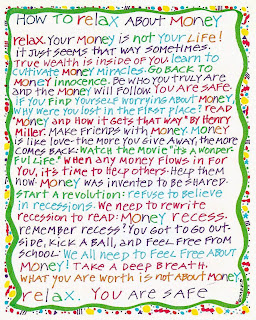 HOW TO relax ABOUT MONEY
relax. YOUR MONEY is not YOUR LIFE!
it JUST SEEMS THAT WAY SOMETIMES.
TRUE WEALTH is inside OF YOU. LEARN TO
CULTIVATE MONEY MIRACLES. GO BACK TO
MONEY INNOCENCE. BE WHO YOU TRULY ARE
and THE MONEY will FOLLOW. YOU ARE SAFE.
IF YOU FIND YOURSELF WORRYING ABOUT MONEY,
WHY WERE YOU LOST IN THE FIRST PLACE? READ
"MONEY and HOW it GETS THAT WAY" BY HENRY
MILLER. MAKE FRIENDS WITH MONEY. MONEY
is LIKE LOVE-THE MORE YOU GIVE AWAY, THE MORE
COMES BACK. WATCH THE MOVIE "it's A WONDER-
FUL LIFE." WHEN ANY MONEY FLOWS IN FOR
YOU, it's TIME TO HELP OTHERS. HELP THEM
NOW. MONEY WAS INVENTED TO BE SHARED.
START A REVOLUTION: REFUSE TO BELIEVE
in RECESSIONS. WE NEED TO REWRITE
RECESSION TO READ: MONEY RECESS.
REMEMBER RECESS? YOU GOT TO GO OUT-
SIDE, KICK A BALL, AND FEEL FREE FROM
SCHOOL. WE ALL NEED TO FEEL FREE ABOUT
MONEY! TAKE A DEEP BREATH.
WHAT YOU ARE WORTH is NOT ABOUT MONEY.
relax. YOU ARE SAFE